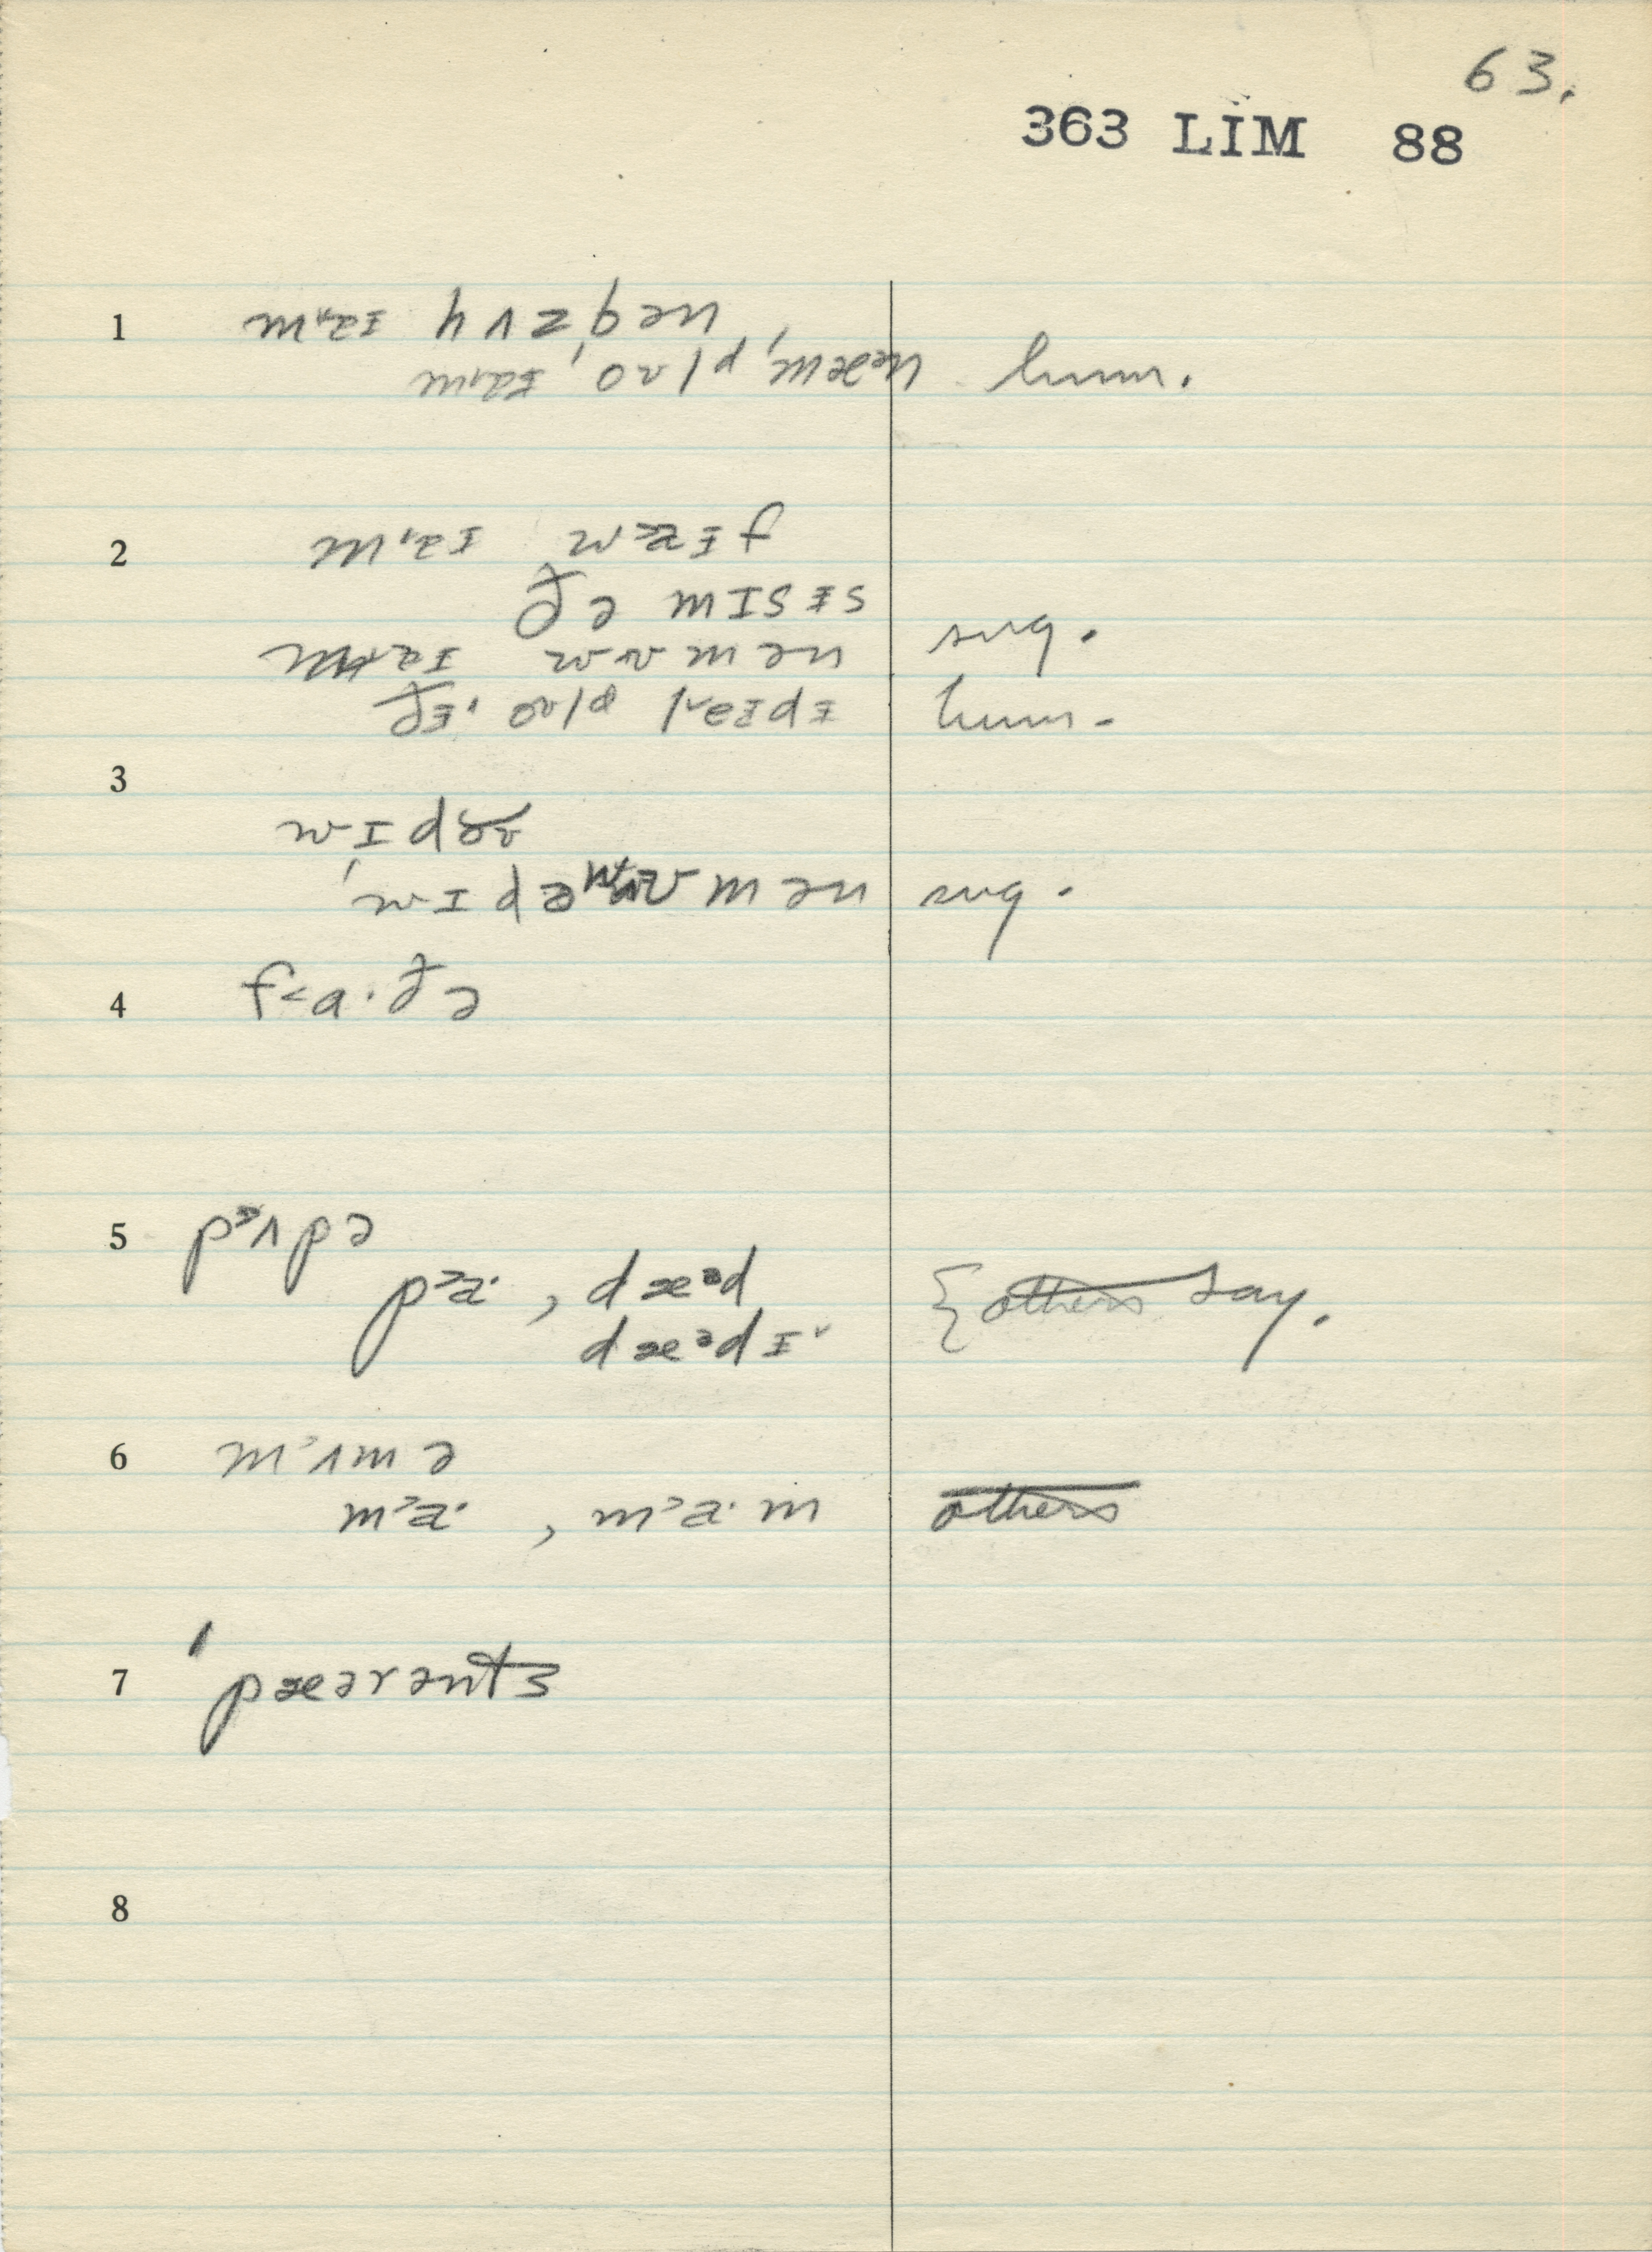 63.
363 LIM 88
1 ma·ɪ hʌzbən
ma·ɪ 'oʊld 'mæən hum.
2 ma·ɪ waɪf
ðə mɪsɪs
ma·ɪ wʊmən sug.
ðɪ· oʊld leɪdɪ hum.
3 wɪdə
'wɪdəwʊmən sug.
4 fa·ðə
5 pʌpə
pa·, dæəd { others say.
dæədɪ
6 mʌmə
ma·, ma·m others
7 'pæərənts
8